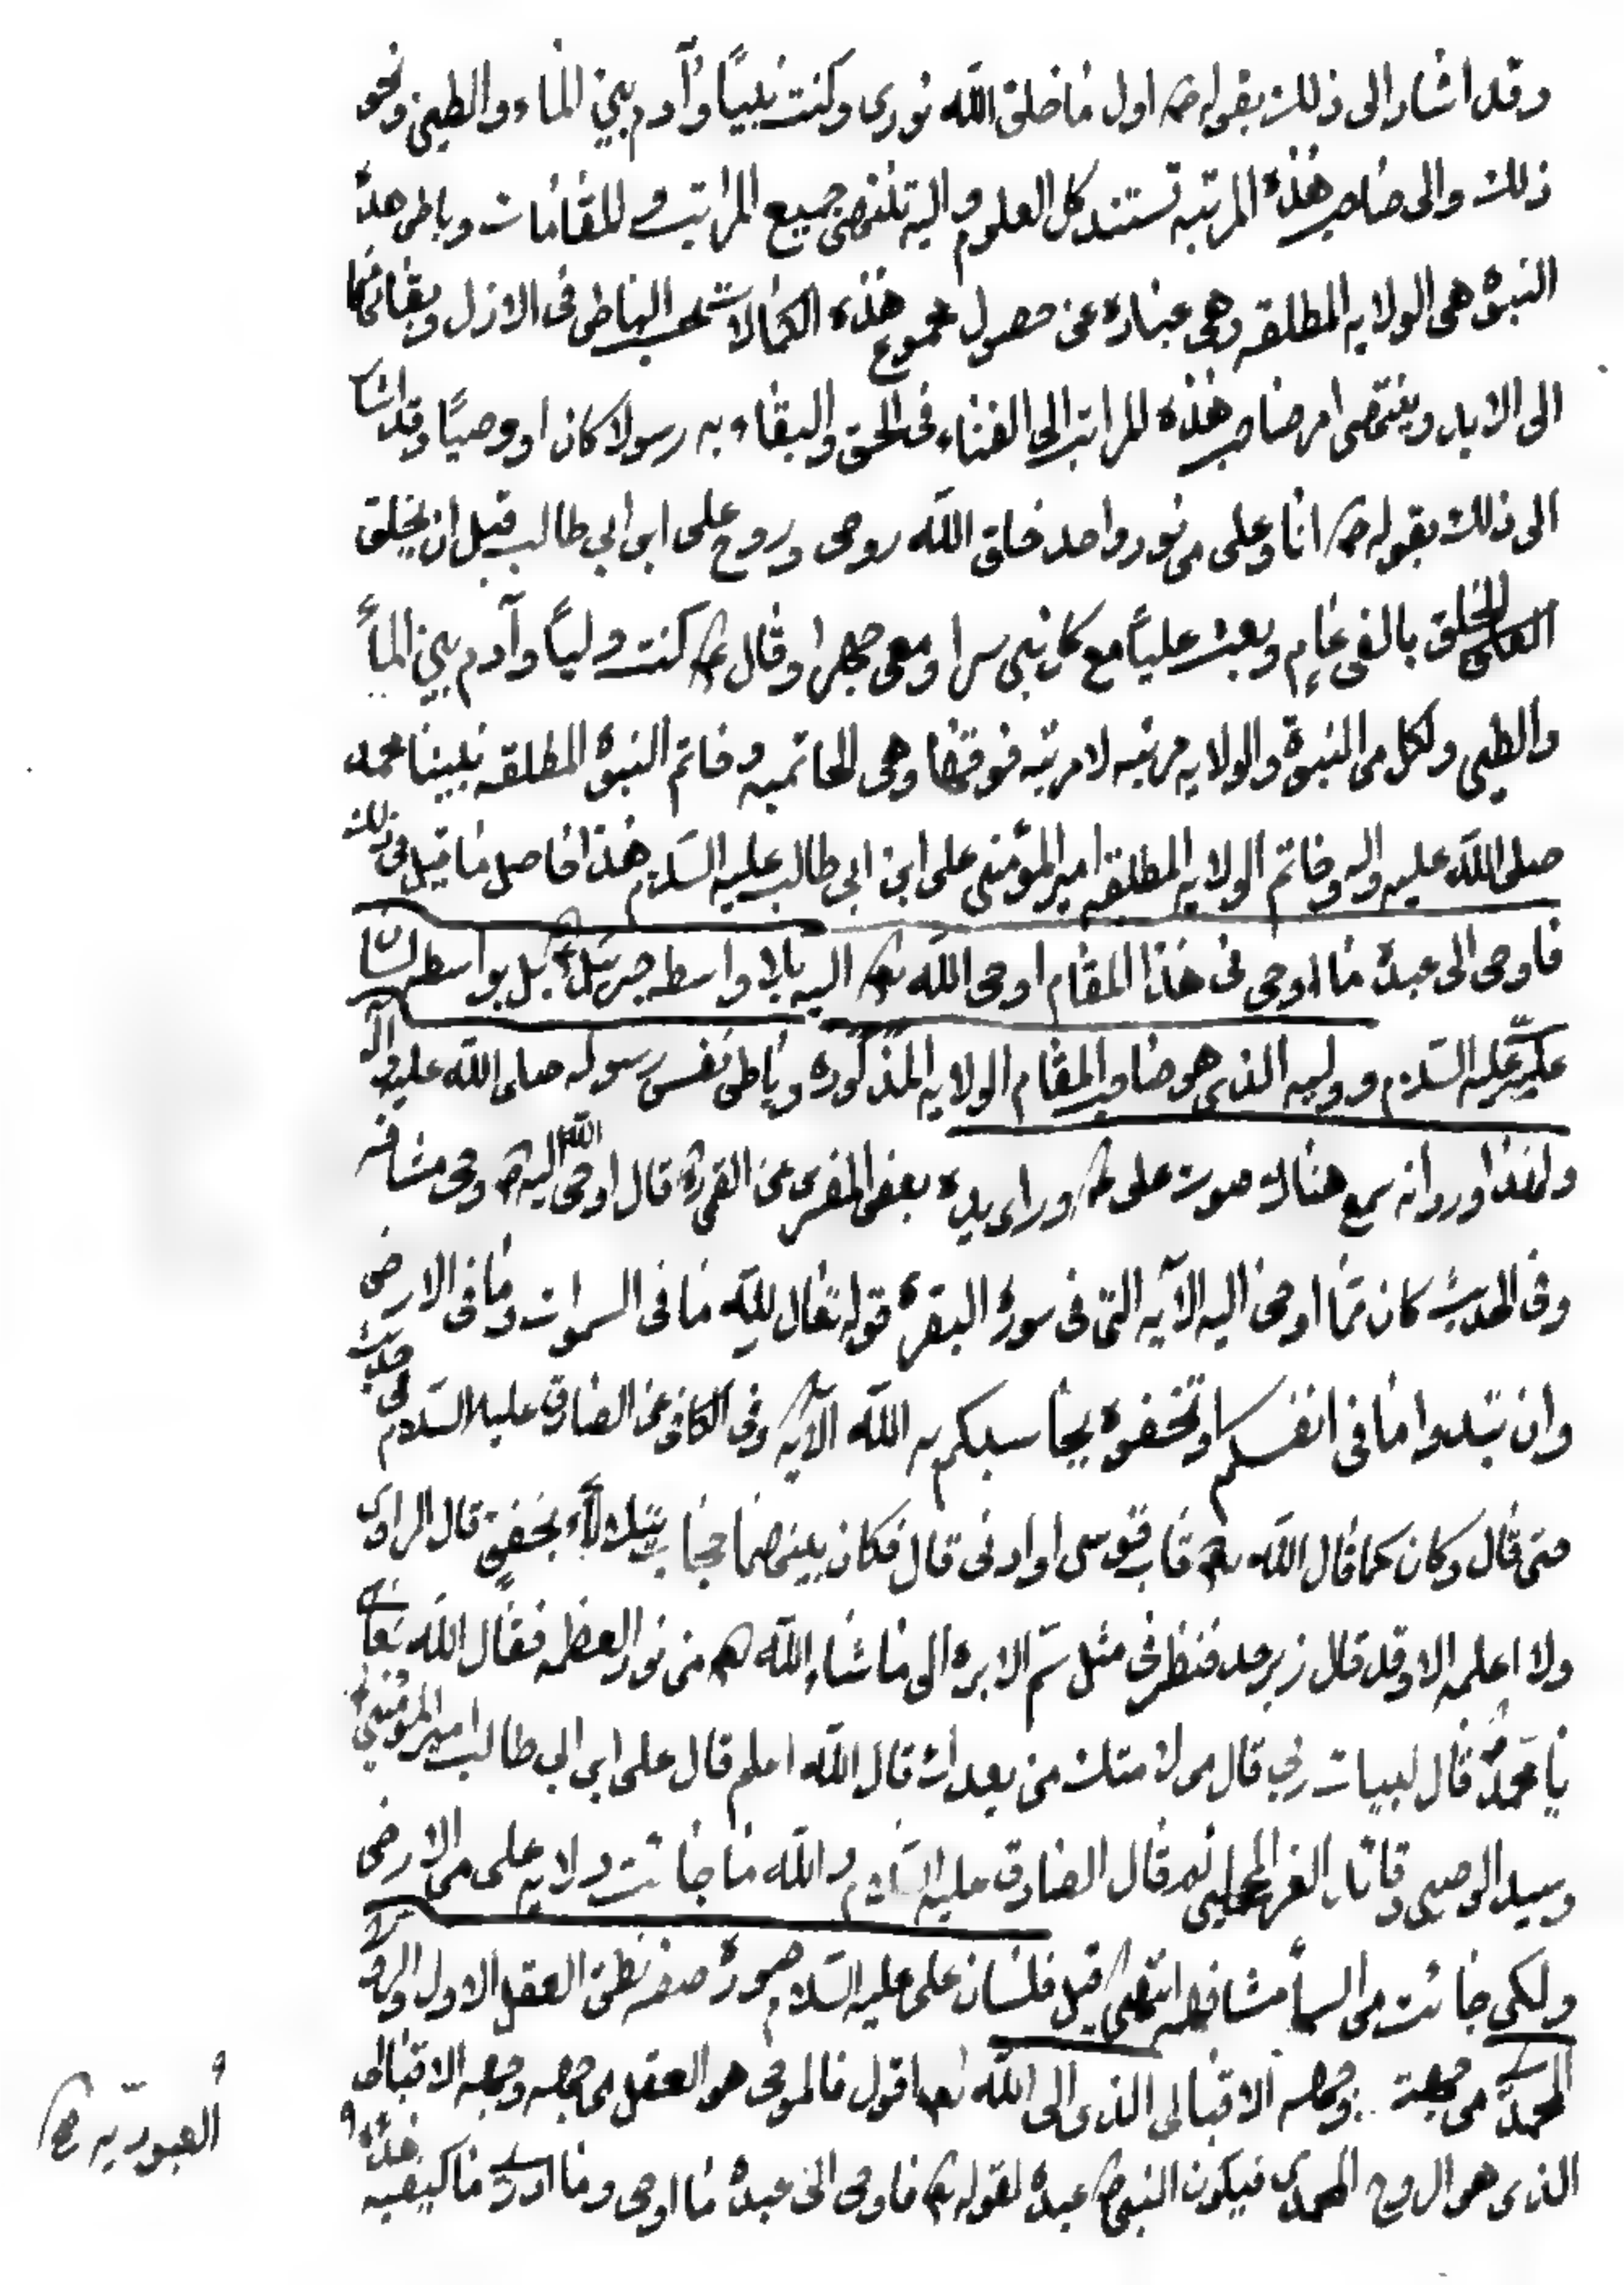 وقد اشار الى ذلك بقوله ص اول ما خلق الله نورى وكنت نبيًا وآدم بين الماء والطين ونحو
ذلك والى صاحب هذه المرتبه تستند كل العلوم واليه تنتهى جميع المراتب والمقامات وباطن هذه
النبوة هى الولايه المطلقه وهى عبارة عن حصول مجموع هذه الكمالات بحسب الباطن فى الازل وبقائها
الى الابد وينتهى امر صاحب هذه المراتب الى الفناء فى الحق والبقاء به رسولا كان او وصيًا وقد اشار
الى ذلك بقوله ص انا وعلى من نور واحد خلق الله روحى وروح على ابن ابي طالب قبل ان يخلق
الخلق بالفى عام وبعث عليًا مع كل نبى سرا ومعى جهرا وقال ع كنت وليًا وآدم بين الماء
والطين ولكل من النبوة والولايه مرتبه لا مرتبه فوقها وهى الخاتميه وخاتم النبوة المطلقه نبينا محمد
صلى الله عليه واله وخاتم الولايه المطلقه امير المؤمنين على ابن ابى طالب عليه السلام هذا حاصل ما قيل فى ذلك
فاوحى الى عبده ما اوحى فى هذا المقام اوحى الله تع اليه بلا واسطه جبرئيل ع بل بواسطه لسان
على عليه السلام ووليه الذى هو صاحب المقام الولايه المذكوره وباطن نفس رسوله صلى الله عليه واله
ولهذا ورد انه سمع هناك صوت على ع وراى يده بعض المفسرين عن القمى قال اوحى الله اليه ص وحى مشافهه
وفى الحديث كان مما اوحى اليه الآيه التى فى سورة البقرة قوله تعالى لله ما فى السموات وما فى الارض
وان تبدوا ما فى انفسكم او تخفوه يحاسبكم به الله الآيه وفى الكافى عن الصادق عليه السلام فى حديث
حتى قال وكان كما قال الله تع قاب قوسين او ادنى قال فكان بينهما حجاب يتلألأ بخفق قال الراوى
ولا اعلمه الا وقد قال زبرجد فنظر فى مثل سم الابرة الى ما شاء الله من نور العظمه فقال الله تعالى
يا محمد قال لبيك ربي قال من لامتك من بعدك قال الله اعلم قال على ابن ابى طالب امير المؤمنين
وسيد الوصيين وقائد الغر المحجلين ثم قال الصادق عليه السلام والله ما جائت ولايه على من الارض
ولكن جائت من السماء مشافهه انتهى قيل فلسان على عليه السلام صورة صفه نطق العقل الاول والروح
المحمدى من جهة وجهه الاقبالى الذى الى الله تعا اقول فالموحى هو العقل من جهه وجهه الاقبالى
الذى هو الروح المحمدى فيكون النبى ص عبده لقوله تع فاوحى الى عبده ما اوحى وما ادرى ما كيفيه هذه
العبوديه